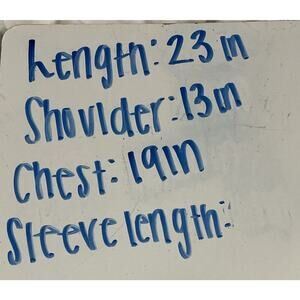 Length: 23 in
Shoulder: 13 in
Chest: 19in
Sleeve length: